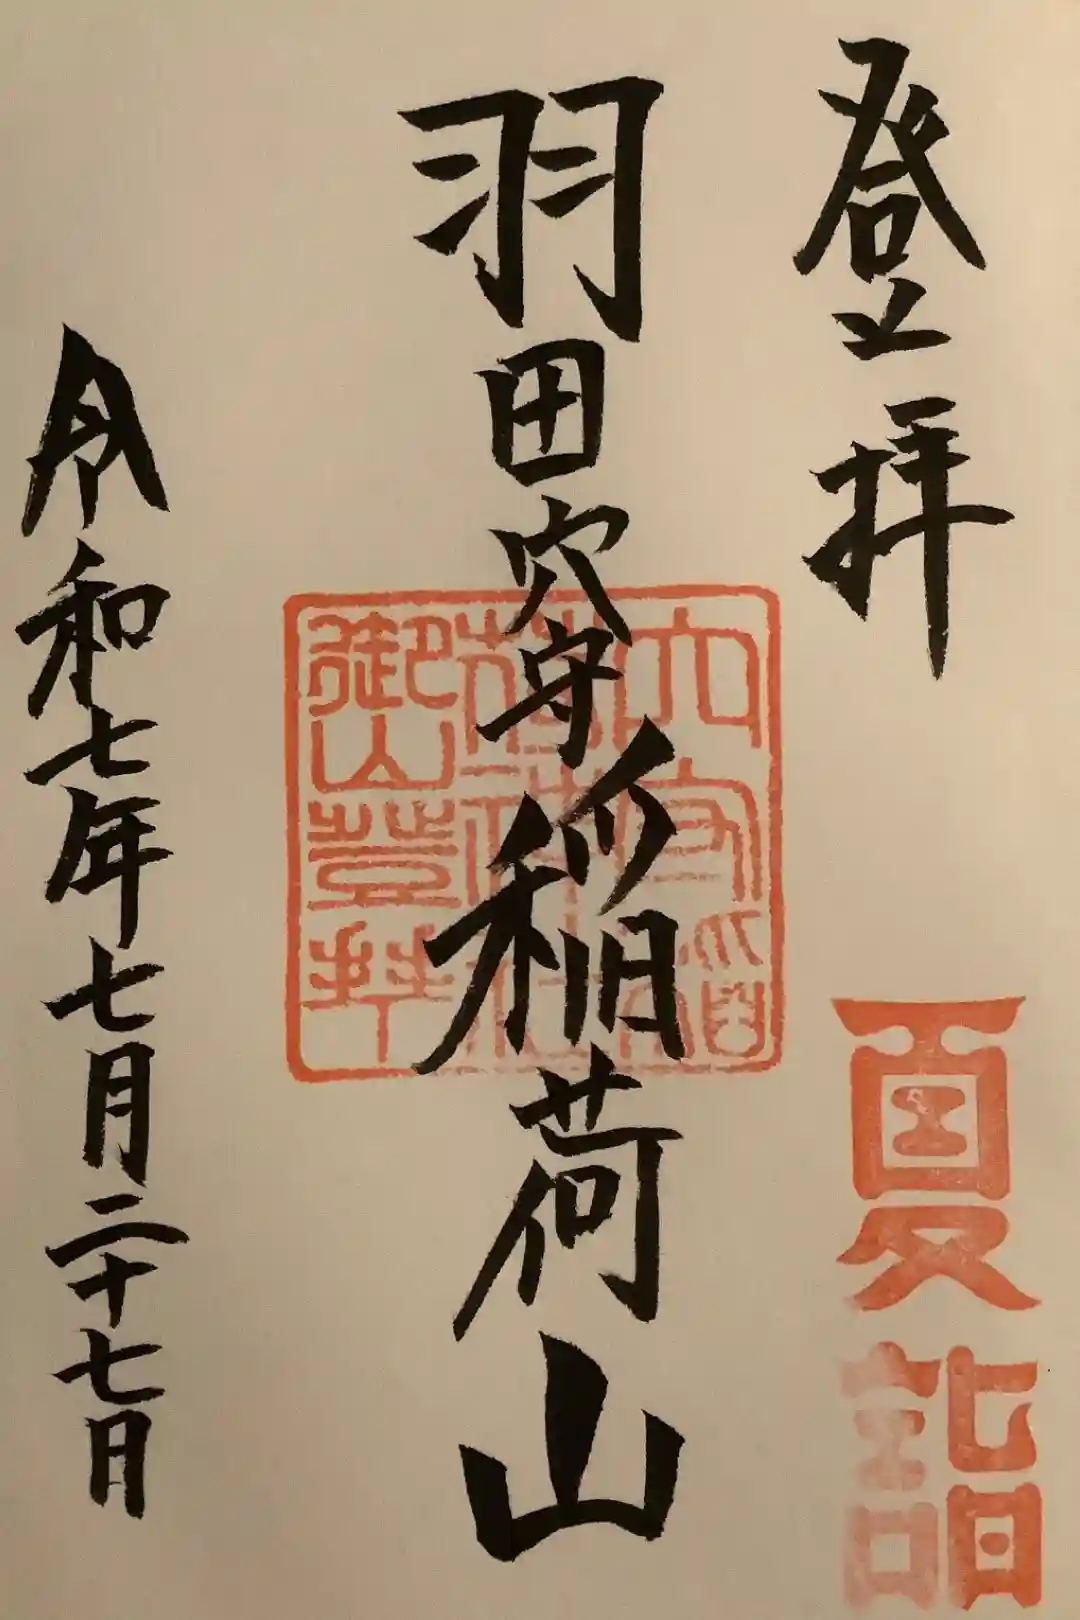 登拝
夏詣
羽田穴守稲荷山
穴守稲
荷神社
御山登拝
令和七年七月二十七日